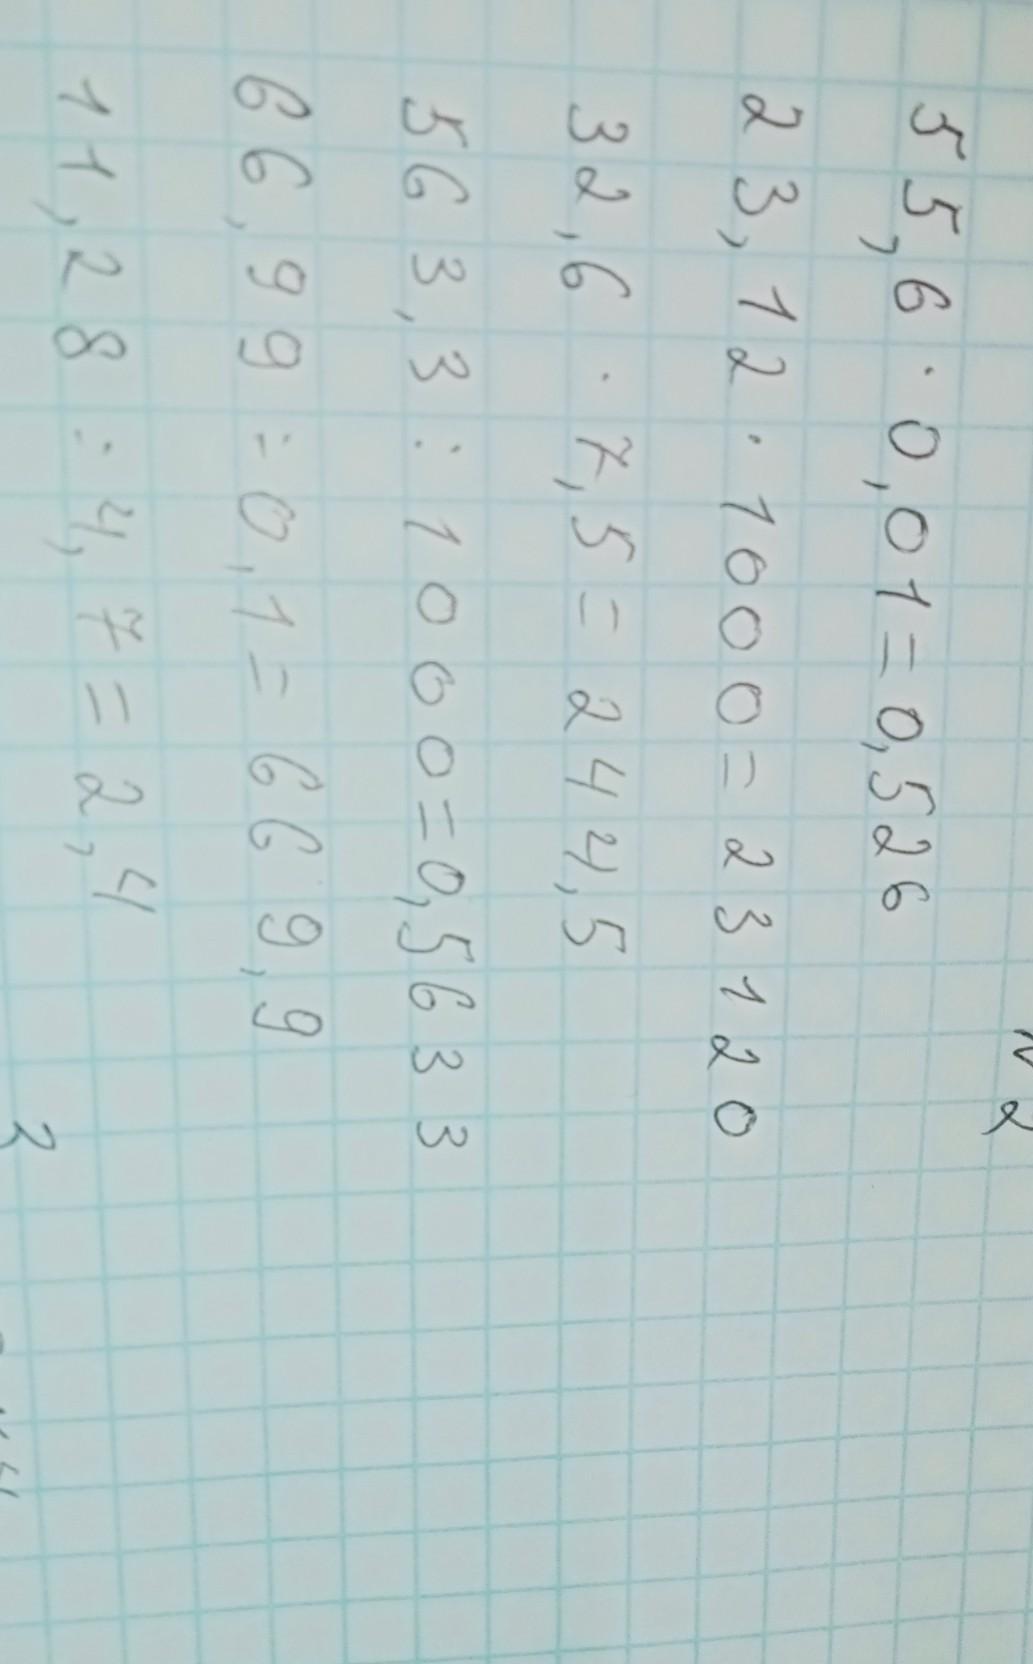 N2
55,6 · 0,01 = 0,526
23,12 · 1000 = 23120
32,6 · 7,5 = 244,5
563,3 : 1000 = 0,5633
66,99 : 0,1 = 669,9
11,28 : 4,7 = 2,4
3